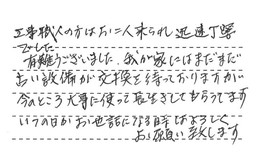 工事職人の方はお二人来られ迅速丁寧
でした
有難うございました。我が家にはまだまだ
古い設備が交換を待っておりますが
今のところ大事に使って長生きしてもらうてます
いつの日かお世話になる時はよろしく
お願い致します